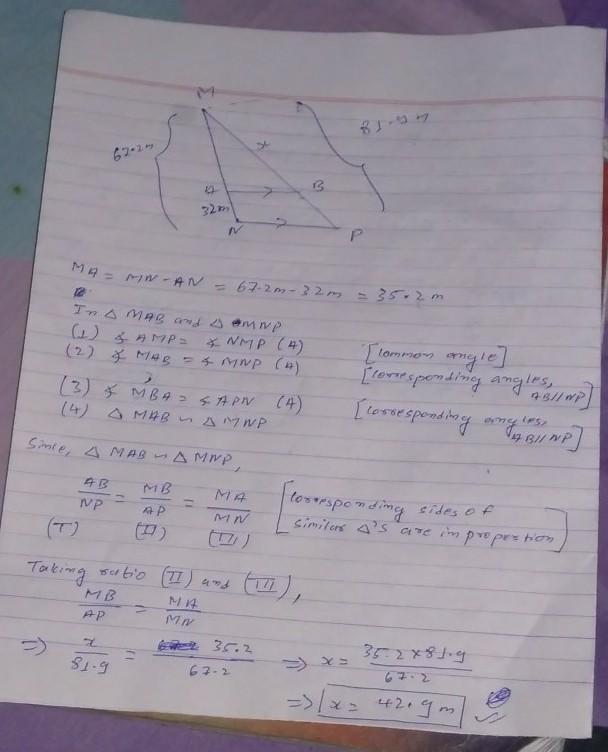 M
67.2m
x
81.9m
A
B
32m
N
P
MA = MN - AN = 67.2m - 32m = 35.2m
In △ MAB and △ MNP
(1) ∡ AMP = ∡ NMP (A) [common angle]
(2) ∡ MAB = ∡ MNP (A) [corresponding angles, AB//NP]
(3) ∡ MBA = ∡ APN (A) [corresponding angles, AB//NP]
(4) △ MAB ~ △ MNP
Since, △ MAB ~ △ MNP,
AB/NP = MB/AP = MA/MN [corresponding sides of similar △'s are in proportion]
(I) (II) (III)
Taking ratio (II) and (III),
MB/AP = MA/MN
⇒ x/81.9 = 35.2/67.2 ⇒ x = 35.2×81.9/67.2
⇒ x = 42.9m